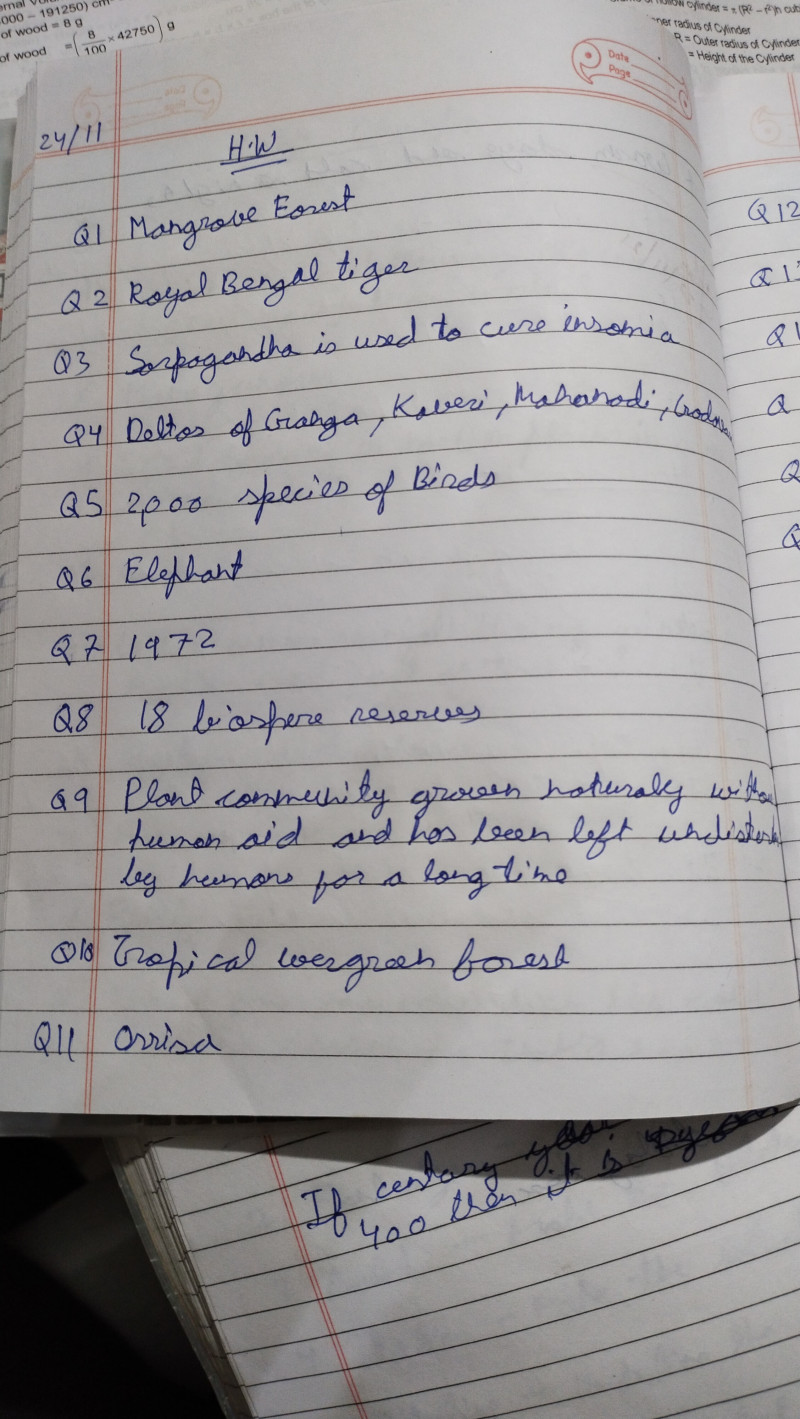 000 - 191250) cm
of wood = 8 g
of wood = (8/100 × 42750) g
ner radius of Cylinder
R = Outer radius of Cylinder
= Height of the Cylinder
Date
Page
24/11
H.W
Q1 Mangrove Forest
Q2 Royal Bengal tiger
Q3 Sarpagandha is used to cure insomia
Q4 Deltas of Ganga, Kaveri, Mahanadi,
Q5 2,000 species of Birds
Q6 Elephant
Q7 1972
Q8 18 biospere reserves
Q9 Plant community grown naturaly
human aid and has been left
by humans for a long time
Q10 Tropical evergreen forest
Q11 Orrisa
Q12
If century
400 then it is